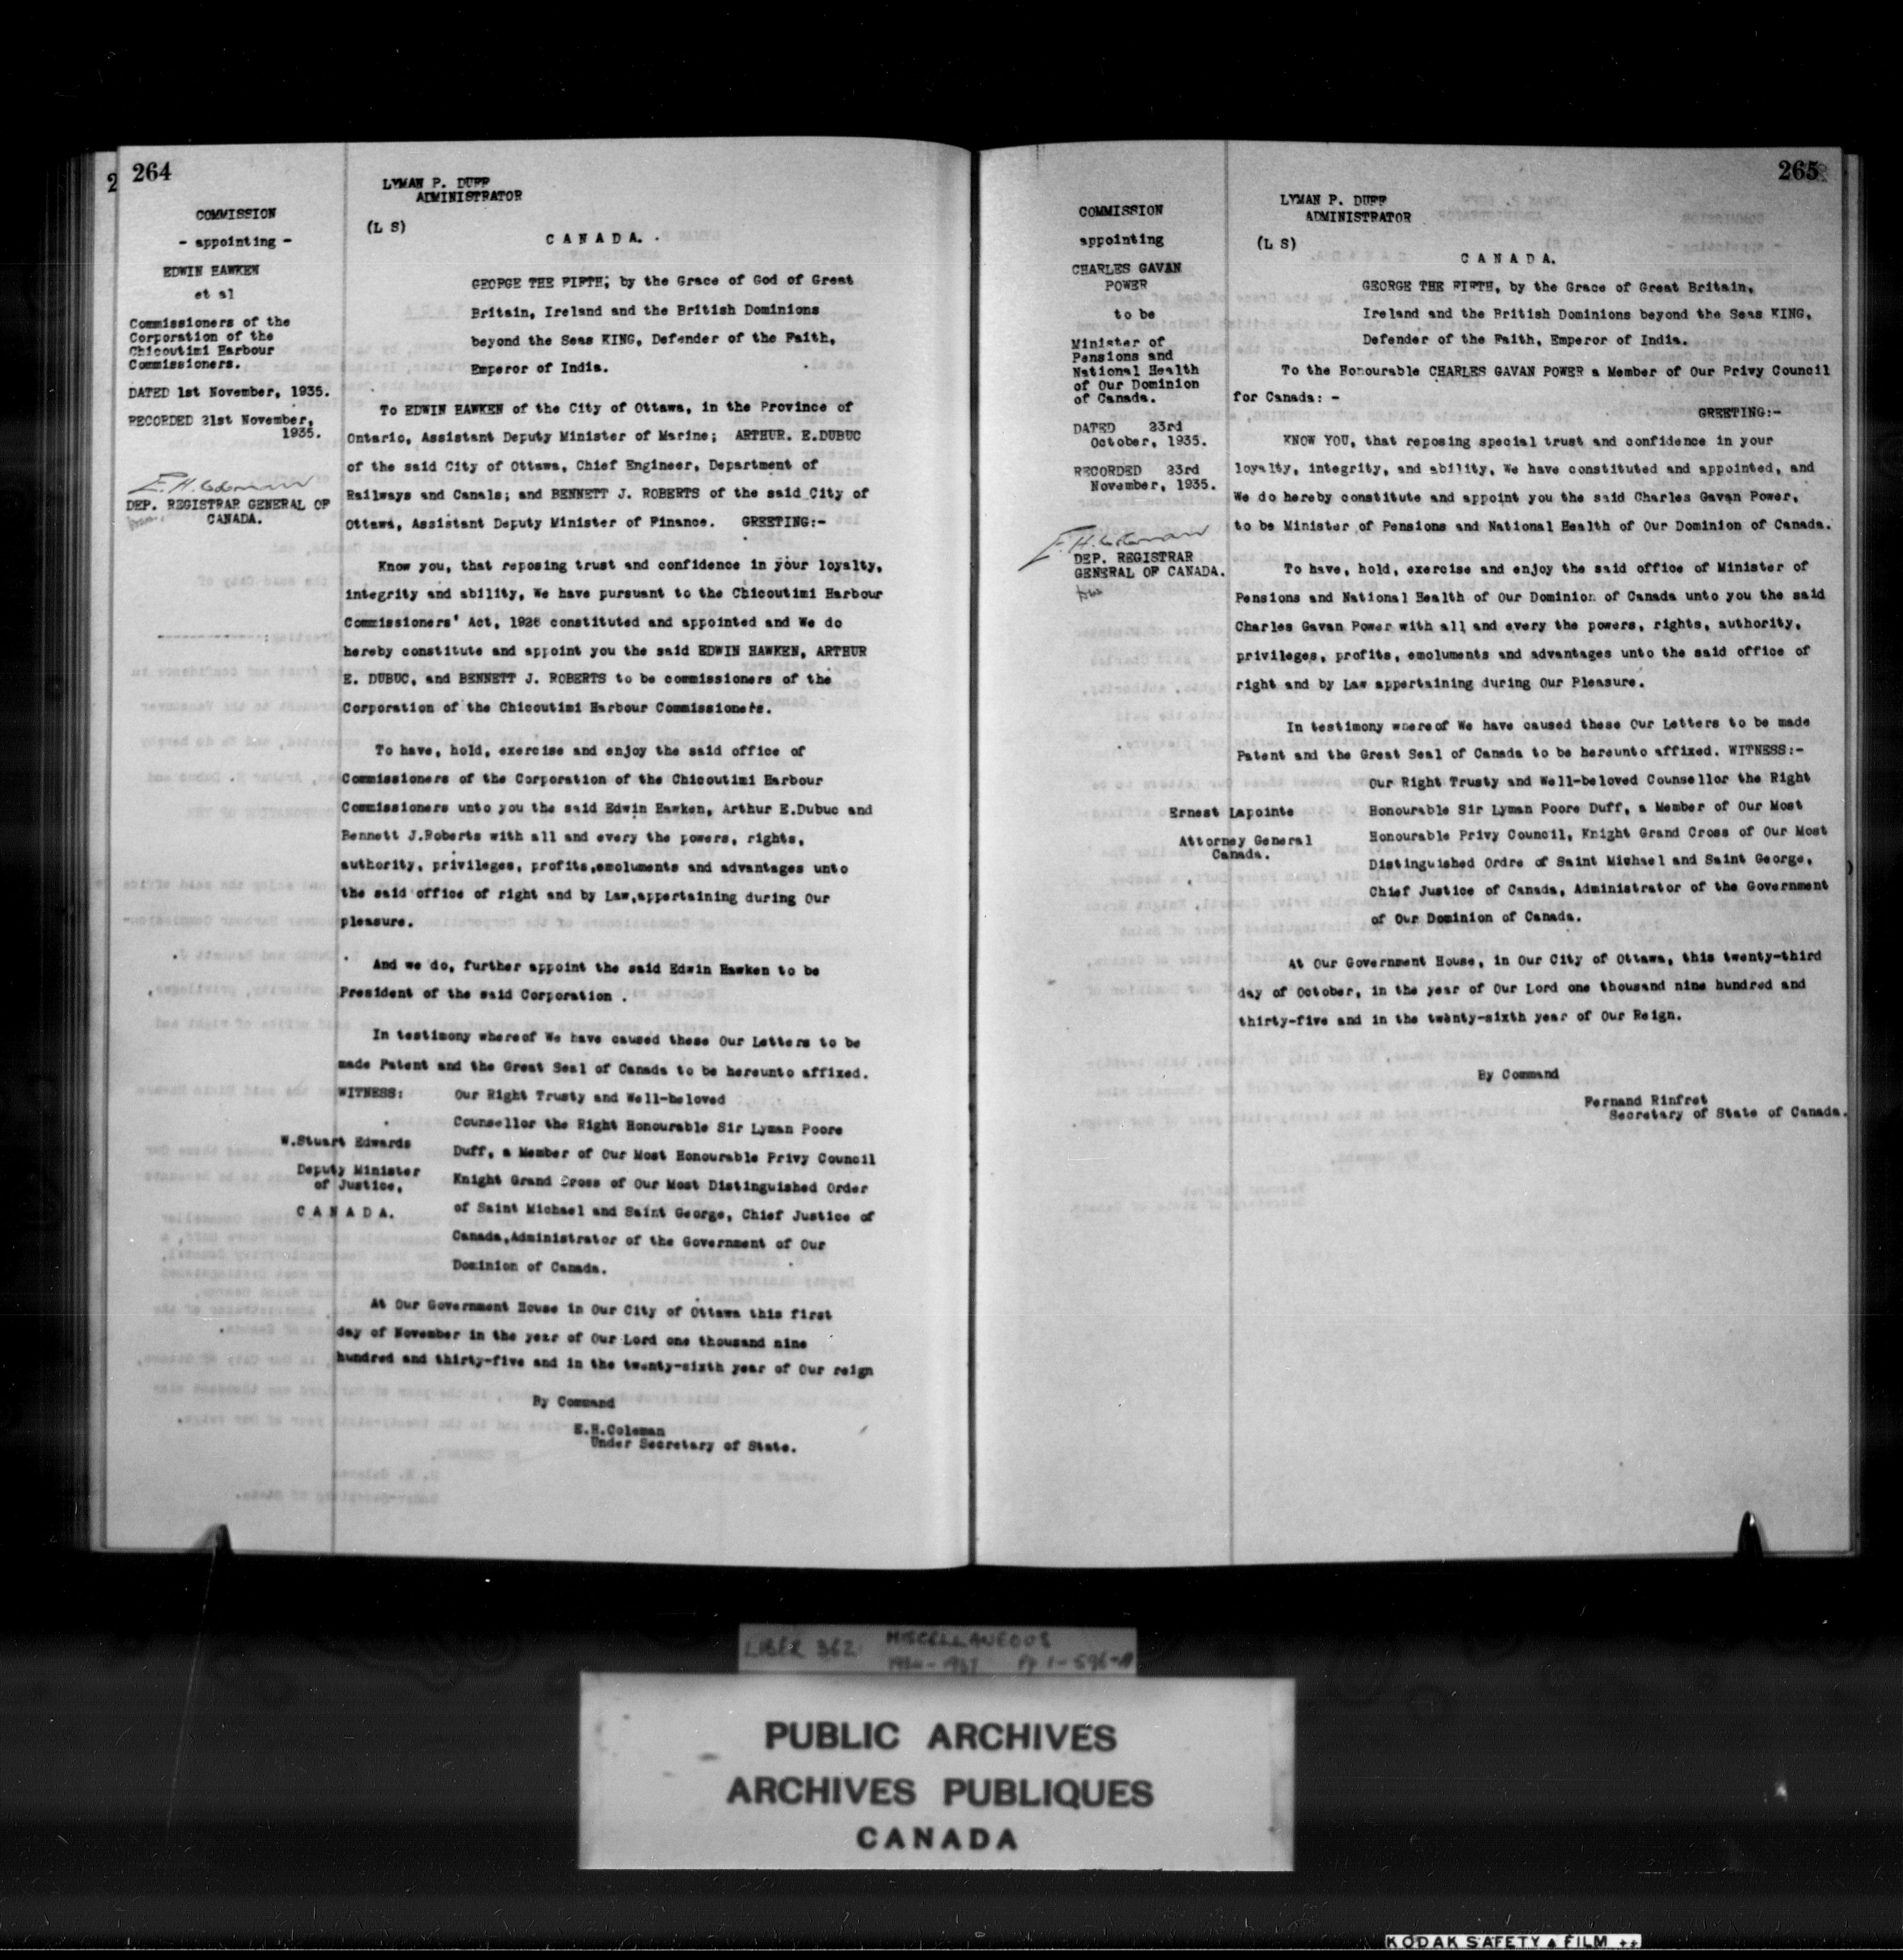 264
COMMISSION
- appointing -
EDWIN HAWKEN
et al
Commissioners of the
Corporation of the
Chicoutimi Harbour
Commissioners.
DATED 1st November, 1935.
RECORDED 21st November,
1935.
E.H. Coleman
DEP. REGISTRAR GENERAL OF
CANADA.
LYMAN P. DUFF
ADMINISTRATOR
(L S)
C A N A D A.
GEORGE THE FIFTH, by the Grace of God of Great
Britain, Ireland and the British Dominions
beyond the Seas KING, Defender of the Faith,
Emperor of India.
To EDWIN HAWKEN of the City of Ottawa, in the Province of
Ontario, Assistant Deputy Minister of Marine; ARTHUR. E.DUBUC
of the said City of Ottawa, Chief Engineer, Department of
Railways and Canals; and BENNETT J. ROBERTS of the said City of
Ottawa, Assistant Deputy Minister of Finance. GREETING:-
Know you, that reposing trust and confidence in your loyalty,
integrity and ability, We have pursuant to the Chicoutimi Harbour
Commissioners' Act, 1926 constituted and appointed and We do
hereby constitute and appoint you the said EDWIN HAWKEN, ARTHUR
E. DUBUC, and BENNETT J. ROBERTS to be commissioners of the
Corporation of the Chicoutimi Harbour Commissioners.
To have, hold, exercise and enjoy the said office of
Commissioners of the Corporation of the Chicoutimi Harbour
Commissioners unto you the said Edwin Hawken, Arthur E.Dubuc and
Bennett J.Roberts with all and every the powers, rights,
authority, privileges, profits,emoluments and advantages unto
the said office of right and by Law,appertaining during Our
pleasure.
And we do, further appoint the said Edwin Hawken to be
President of the said Corporation .
In testimony whereof We have caused these Our Letters to be
made Patent and the Great Seal of Canada to be hereunto affixed.
WITNESS: Our Right Trusty and Well-beloved
Counsellor the Right Honourable Sir Lyman Poore
Duff, a Member of Our Most Honourable Privy Council
Knight Grand Cross of Our Most Distinguished Order
of Saint Michael and Saint George, Chief Justice of
Canada,Administrator of the Government of Our
Dominion of Canada.
W.Stuart Edwards
Deputy Minister
of Justice,
C A N A D A.
At Our Government House in Our City of Ottawa this first
day of November in the year of Our Lord one thousand nine
hundred and thirty-five and in the twenty-sixth year of Our reign
By Command
E.H.Coleman
Under Secretary of State.
265
COMMISSION
appointing
CHARLES GAVAN
POWER
to be
Minister of
Pensions and
National Health
of Our Dominion
of Canada.
DATED 23rd
October, 1935.
RECORDED 23rd
November, 1935.
E.H. Coleman
DEP. REGISTRAR
GENERAL OF CANADA.
LYMAN P. DUFF
ADMINISTRATOR
(L S)
C A N A D A.
GEORGE THE FIFTH, by the Grace of Great Britain,
Ireland and the British Dominions beyond the Seas KING,
Defender of the Faith, Emperor of India.
To the Honourable CHARLES GAVAN POWER a Member of Our Privy Council
for Canada: -
GREETING:-
KNOW YOU, that reposing special trust and confidence in your
loyalty, integrity, and ability, We have constituted and appointed, and
We do hereby constitute and appoint you the said Charles Gavan Power,
to be Minister of Pensions and National Health of Our Dominion of Canada.
To have, hold, exercise and enjoy the said office of Minister of
Pensions and National Health of Our Dominion of Canada unto you the said
Charles Gavan Power with all and every the powers, rights, authority,
privileges, profits, emoluments and advantages unto the said office of
right and by Law appertaining during Our Pleasure.
In testimony whereof We have caused these Our Letters to be made
Patent and the Great Seal of Canada to be hereunto affixed. WITNESS:-
Our Right Trusty and Well-beloved Counsellor the Right
Honourable Sir Lyman Poore Duff, a Member of Our Most
Honourable Privy Council, Knight Grand Cross of Our Most
Distinguished Ordre of Saint Michael and Saint George,
Chief Justice of Canada, Administrator of the Government
of Our Dominion of Canada.
Ernest Lapointe
Attorney General
Canada.
At Our Government House, in Our City of Ottawa, this twenty-third
day of October, in the year of Our Lord one thousand nine hundred and
thirty-five and in the twenty-sixth year of Our Reign.
By Command
Fernand Rinfret
Secretary of State of Canada.
LIBER 362 MISCELLANEOUS
1934-1937 Pp 1-596-A
PUBLIC ARCHIVES
ARCHIVES PUBLIQUES
CANADA
KODAK SAFETY FILM